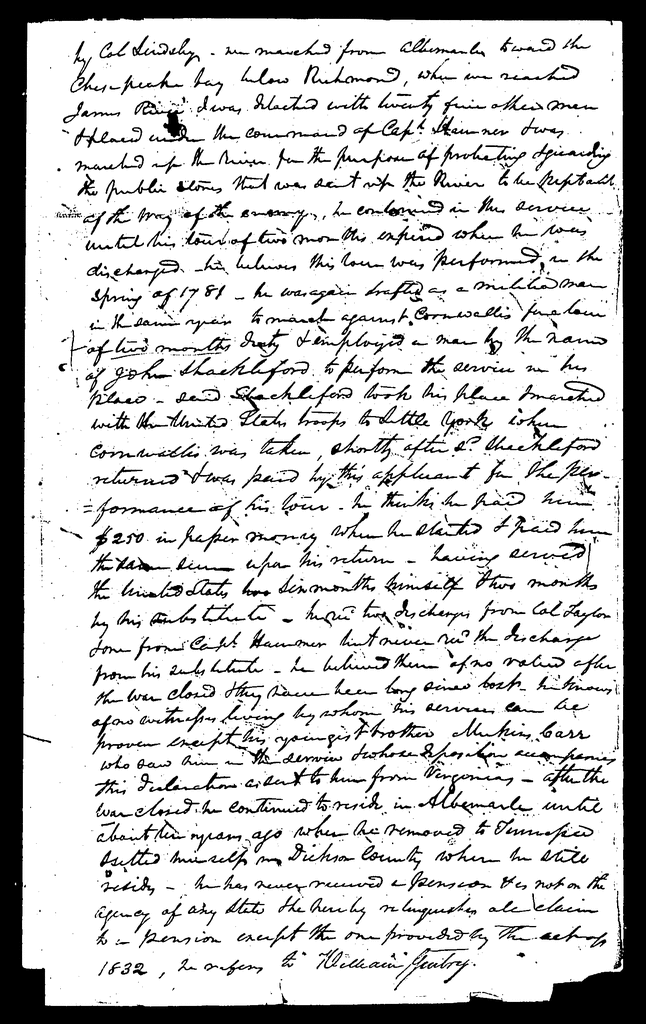 by Col Lindsley - we marched from Albemarle toward the
Chesepeake bay below Richmond, when we reached
James River I was detached with twenty five other men
& placed under the command of Capt. Hammer & was
marched up the River for the purpose of protecting & guarding
the public stores that was sent up the River to be kept out
of the way of the enemy, he continued in this service
until his tour of two months expired when he was
discharged - he believes this tour was performed in the
Spring of 1781 - he was again drafted as a militia man
in the same year to march against Cornwallis for a tour
of two months duty & employed a man by the name
of John Shackleford to perform the service in his
place - said Shackleford took his place & marched
with the United States troops to Little York when
Cornwallis was taken, shortly after sd. Shackleford
returned & was paid by this applicant for the per-
=formance of his tour - he thinks he paid him
$250 in paper money when he started & paid him
the same sum upon his return - having served
the United States six months himself & two months
by his substitute - he recd. two discharges from Col Taylor
& one from Capt. Hammer but never recd. the discharge
from his substitute - he believed them of no value after
the war closed & they have been long since lost - he knows
of no witness living by whom his services can be
proven except his youngest brother Mekins Carr
who saw him in the service & whose deposition accompanies
this declaration as sent to him from Virginia - after the
war closed he continued to reside in Albemarle until
about ten years ago when he removed to Tennessee
& settled himself in Dickson County where he still
resides - he has never received a pension & is not on the
agency of any State & he hereby relinquishes all claim
to a pension except the one provided by the act of
1832, he refers to William Gentry.